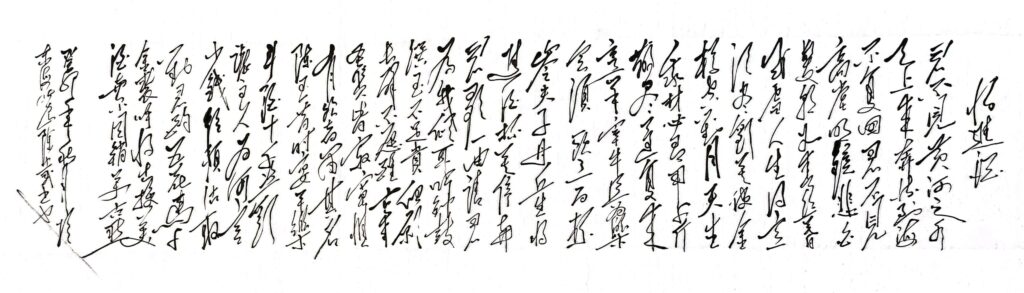 将进酒
君不见黄河之水
天上来奔流到海
不复回君不见
高堂明镜悲白
发朝如青丝暮
成雪人生得意
须尽欢莫使金
樽空对月天生
我材必有用千
散尽还复来
烹羊宰牛且为乐
会须一饮三百杯
岑夫子丹丘生将
进酒杯莫停与
君歌一曲请君
为我倾耳听钟鼓
馔玉不足贵但愿
长醉不愿醒古来
圣贤皆寂寞惟
有饮者留其名
陈王昔时宴平乐
斗酒十千恣欢
谑主人为何言
少钱径须沽取
对君酌五花马千
金裘呼儿将出换美
酒与尔同销万古愁